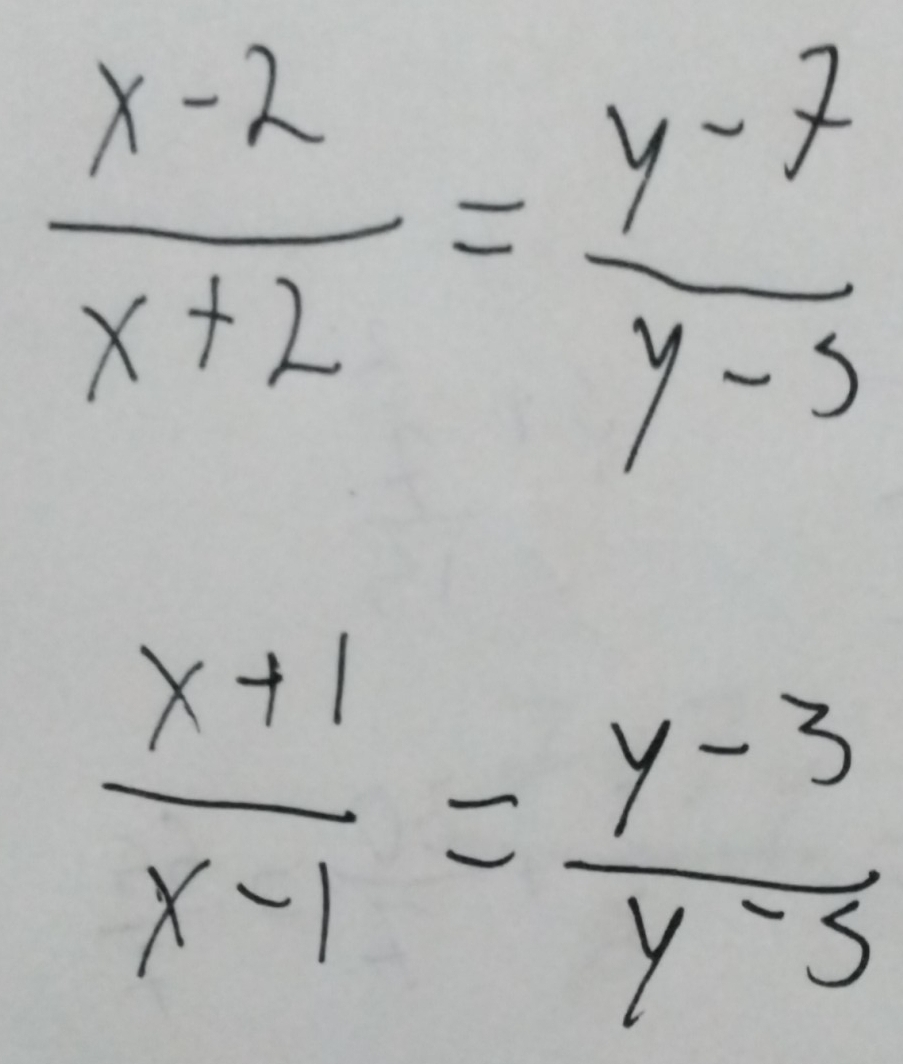 x - 2
x + 2
=
y - 7
y - 5
x + 1
x - 1
=
y - 3
y - 5